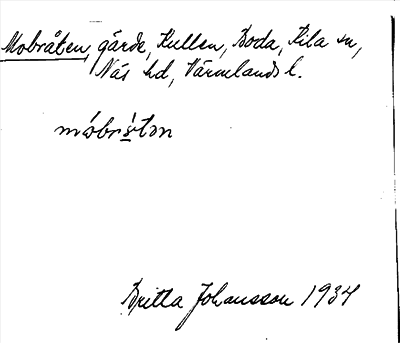 Mobråten, gärde, Kullen, Boda, Kila sn,
Näs hd, Värmlands l.
Britta Johansson 1934